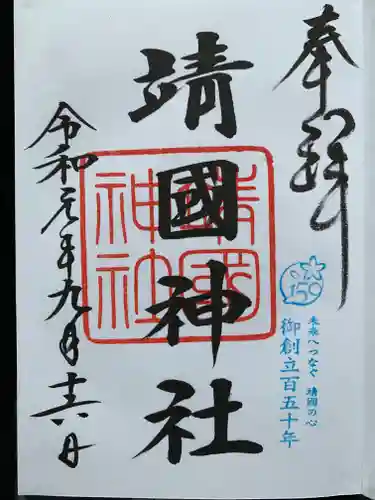 奉拝
150
未来へつなぐ 靖國の心
御創立百五十年
靖國神社
靖國神社
令和元年九月十六日